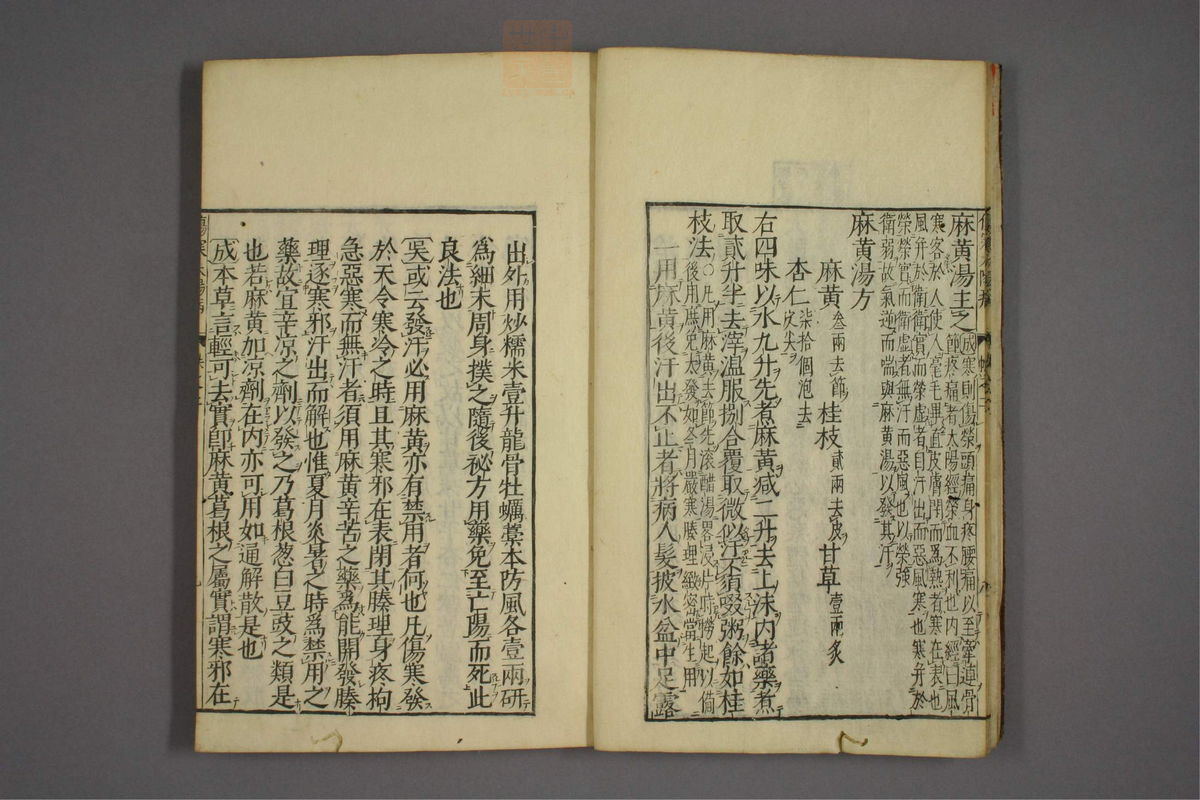 麻黄湯主之成寒則傷榮頭痛身疼腰痛以至牽連骨
節疼痛者太陽經榮血不利也内經曰風
寒客於人使人毫毛畢直皮膚閉而爲熱者寒在表也
風并於衛衛實而榮虚者自汗出而惡風寒也寒并於
榮榮實而衛虚者無汗而惡風也以榮強
衛弱故氣逆而喘與麻黄湯以發其汗
麻黄湯方
麻黄叁兩去節 桂枝貳兩去皮 甘草壹兩炙
杏仁柒拾個泡去皮尖
右四味以水九升先煮麻黄减二升去上沫内諸藥煮
取貳升半去滓温服捌合覆取微似汗不須啜粥餘如桂
枝法○凡用麻黄去節先滚醋湯畧浸片時撈起以備
後用庶免太發如冬月嚴寒腠理緻密當生用
一用麻黄後汗出不止者將病人髮披水盆中足露
出外用炒糯米壹升龍骨牡蠣藁本防風各壹兩研
爲細末周身撲之隨後祕方用藥免至亡陽而死此
良法也
吴或云發汗必用麻黄亦有禁用者何也凡傷寒發
於天令寒冷之時且其寒邪在表閉其腠理身疼拘
急惡寒而無汗者須用麻黄辛苦之藥爲能開發腠
理逐寒邪汗出而解也惟夏月炎暑之時爲禁用之
藥故宜辛凉之劑以發之乃葛根葱白豆豉之類是
也若麻黄加凉劑在内亦可用如通解散是也
成本草言輕可去實卽麻黄葛根之屬實謂寒邪在